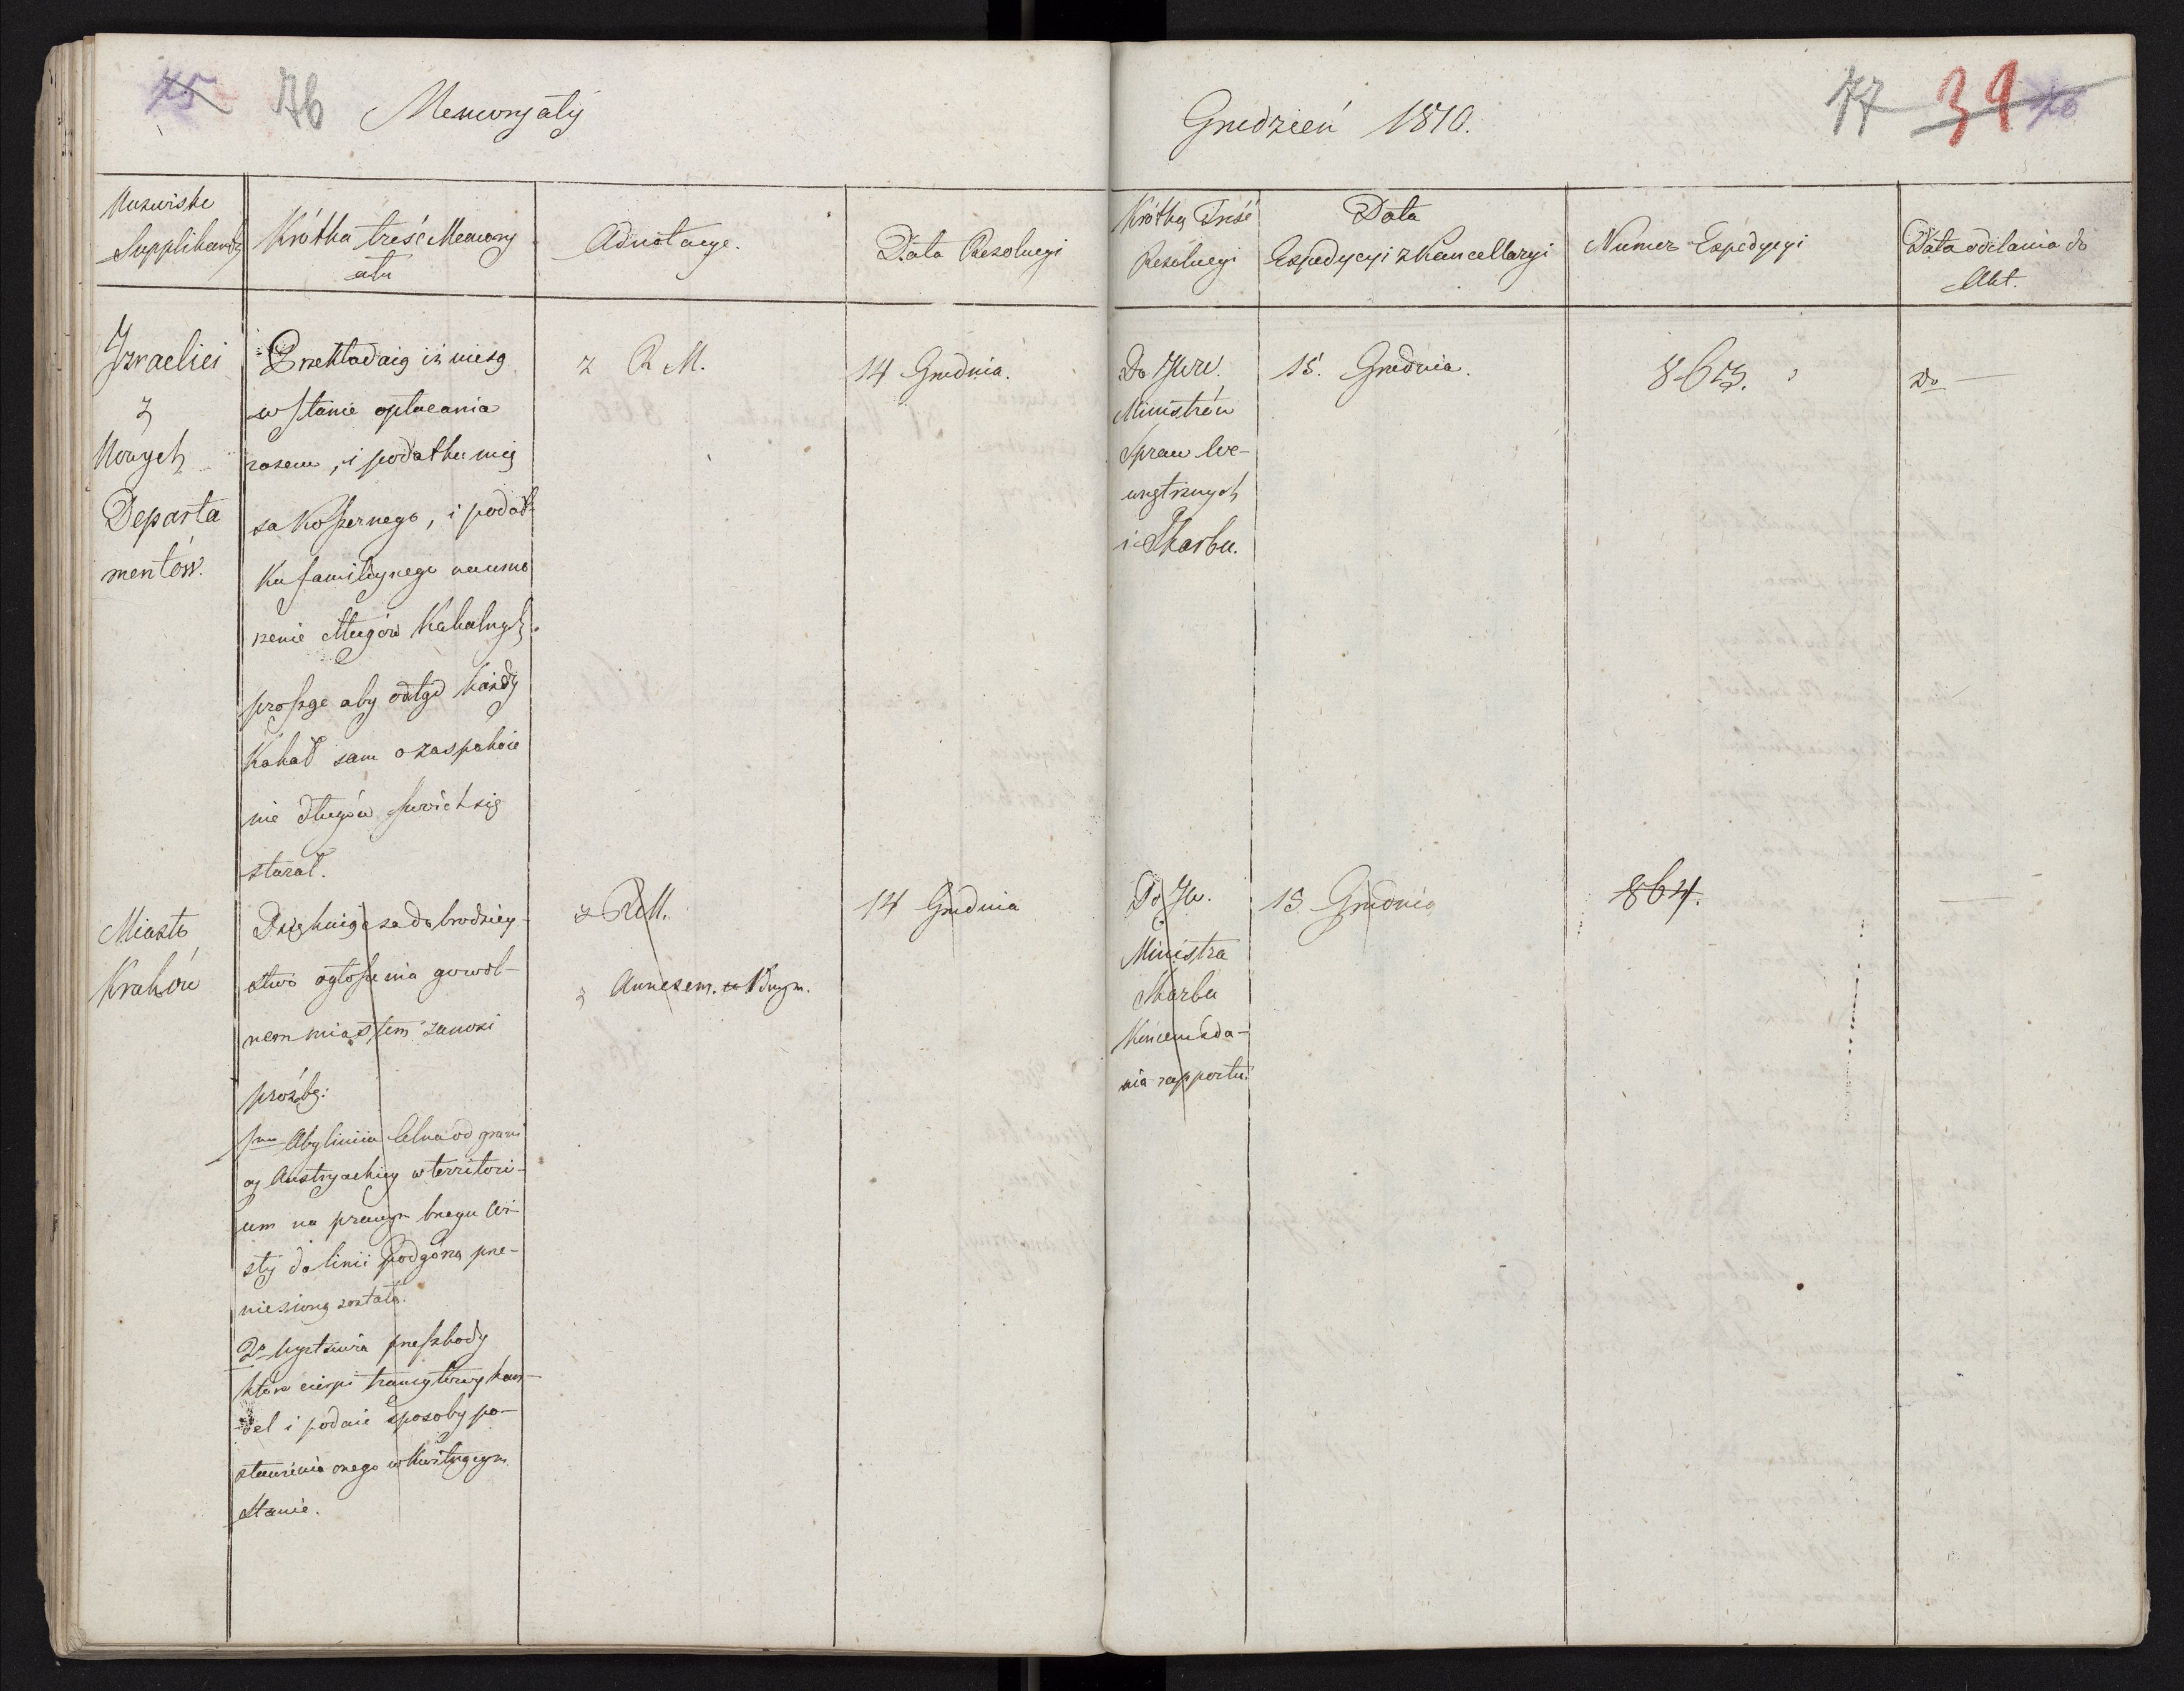 75 76 Memoryały
Grudzień 1810.
77 39 76
Nazwiske
Supplikanta
Krótka treść Memory
ału
Adnotacye.
Data Rezolucyi
Krótka Treść
Rezolucyi
Data
Expedycyi z Kancellaryi
Numer Expedycyi
Data oddania do
Akt.
Izraelici
z
Nowych
Departa
mentów.
Przekładaią iż niesą
w stanie opłacania
razem, i podatku mię
sa Koszernego, i podat
ku familiynego na umo
rzenie długów Kahalnych
proszge aby odtąd każdy
Kahał sam o zaspakoie
nie długów swoich się
starał.
z R M.
14 Grudnia.
Do JWW.
Ministrów
Spraw We-
wnętrznych
i Skarbu.
15. Grudnia.
863.
do —
Miasto
Kraków
Dziękuiąc za dobrodziey-
stwo ogłoszenia go wol-
nem miastem zanosi
prośbę:
1mo Aby liniia Celna od grani
cy Austryackiey w territori-
um na prawym brzegu Wi-
sły do linii Podgórza prze-
niesioną została.
2o Wystawia przeszkody
które cierpi tranzytowy han-
del i podaie sposoby po-
stawienia onego w kwitnącym
stanie.
z RM.
z Annexem. 1dnym.
14 Grudnia
Do JW.
Ministra
Skarbu
końcem zda-
nia rapportu.
15 Grudnia
864.
—